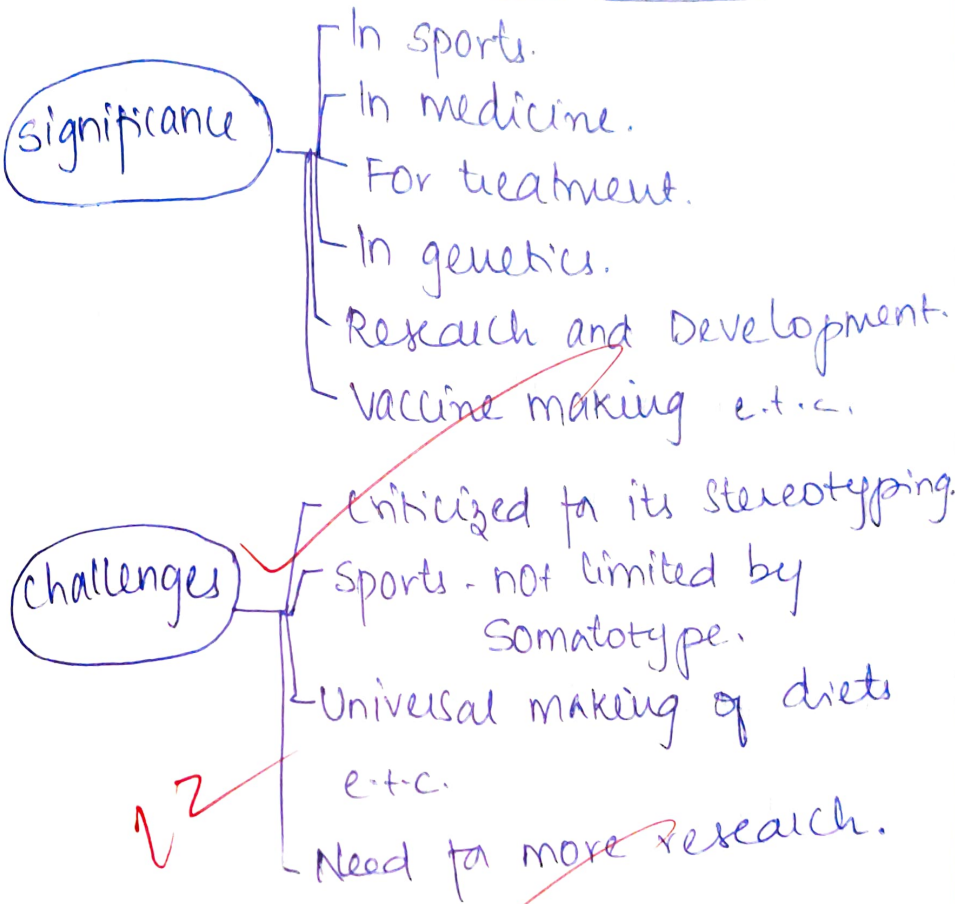 In sports.
significance
In medicine.
For treatment.
In genetics.
Research and Development.
Vaccine making e.t.c.
Criticized for its stereotyping.
challenges
Sports - not limited by
Somatotype.
Universal making of diets
e.t.c.
Need for more research.